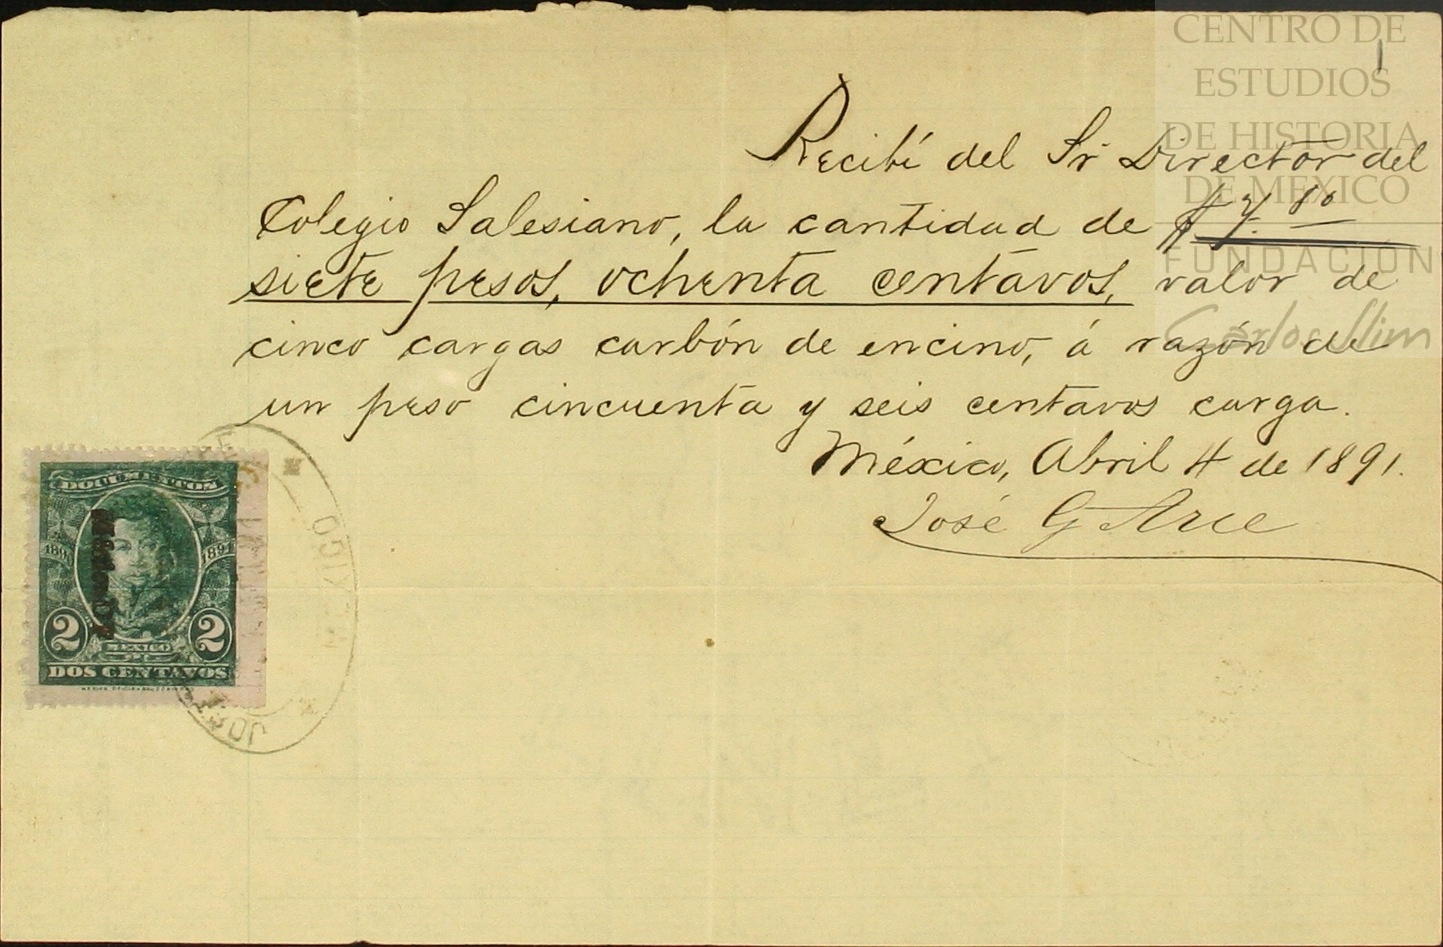 CENTRO DE
ESTUDIOS
DE HISTORIA
DE MÉXICO
FUNDACIÓN
Carlos Slim
Recibí del Sr Director del
Colegio Salesiano, la cantidad de $7.80
siete pesos, ochenta centavos, valor de
cinco cargas carbón de encino, á razón de
un peso cincuenta y seis centavos carga.
México, Abril 4 de 1891.
José G Arce
DOCUMENTOS
1891
2 2
MEXICO
DOS CENTAVOS
MEXICO
JOSE